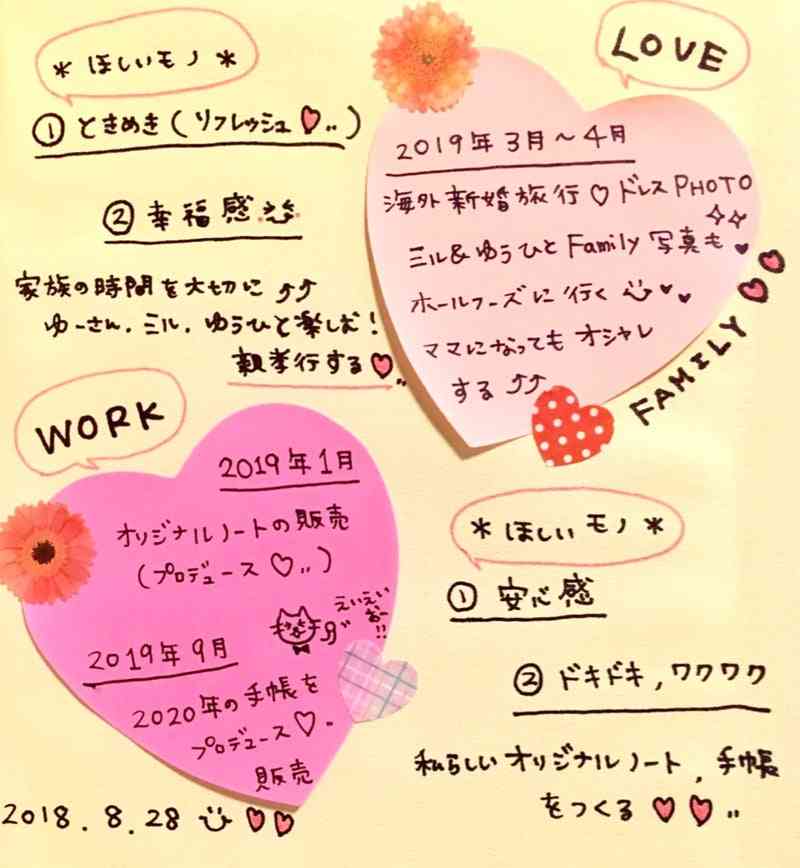 * ほしいモノ *
① ときめき(リフレッシュ♡..)
② 幸福感
家族の時間を大切に
ゆーさん、ミル、ゆうひと楽しむ!
親孝行する
LOVE
2019年3月〜4月
海外新婚旅行♡ドレスPHOTO
ミル&ゆうひとFamily写真も
ホールフーズに行く
ママになってもオシャレ
する
FAMILY
WORK
2019年1月
オリジナルノートの販売
(プロデュース♡..)
えいえい
おー!!
2019年9月
2020年の手帳を
プロデュース♡..
販売
* ほしいモノ *
① 安心感
② ドキドキ,ワクワク
私らしいオリジナルノート、手帳
をつくる
2018.8.28